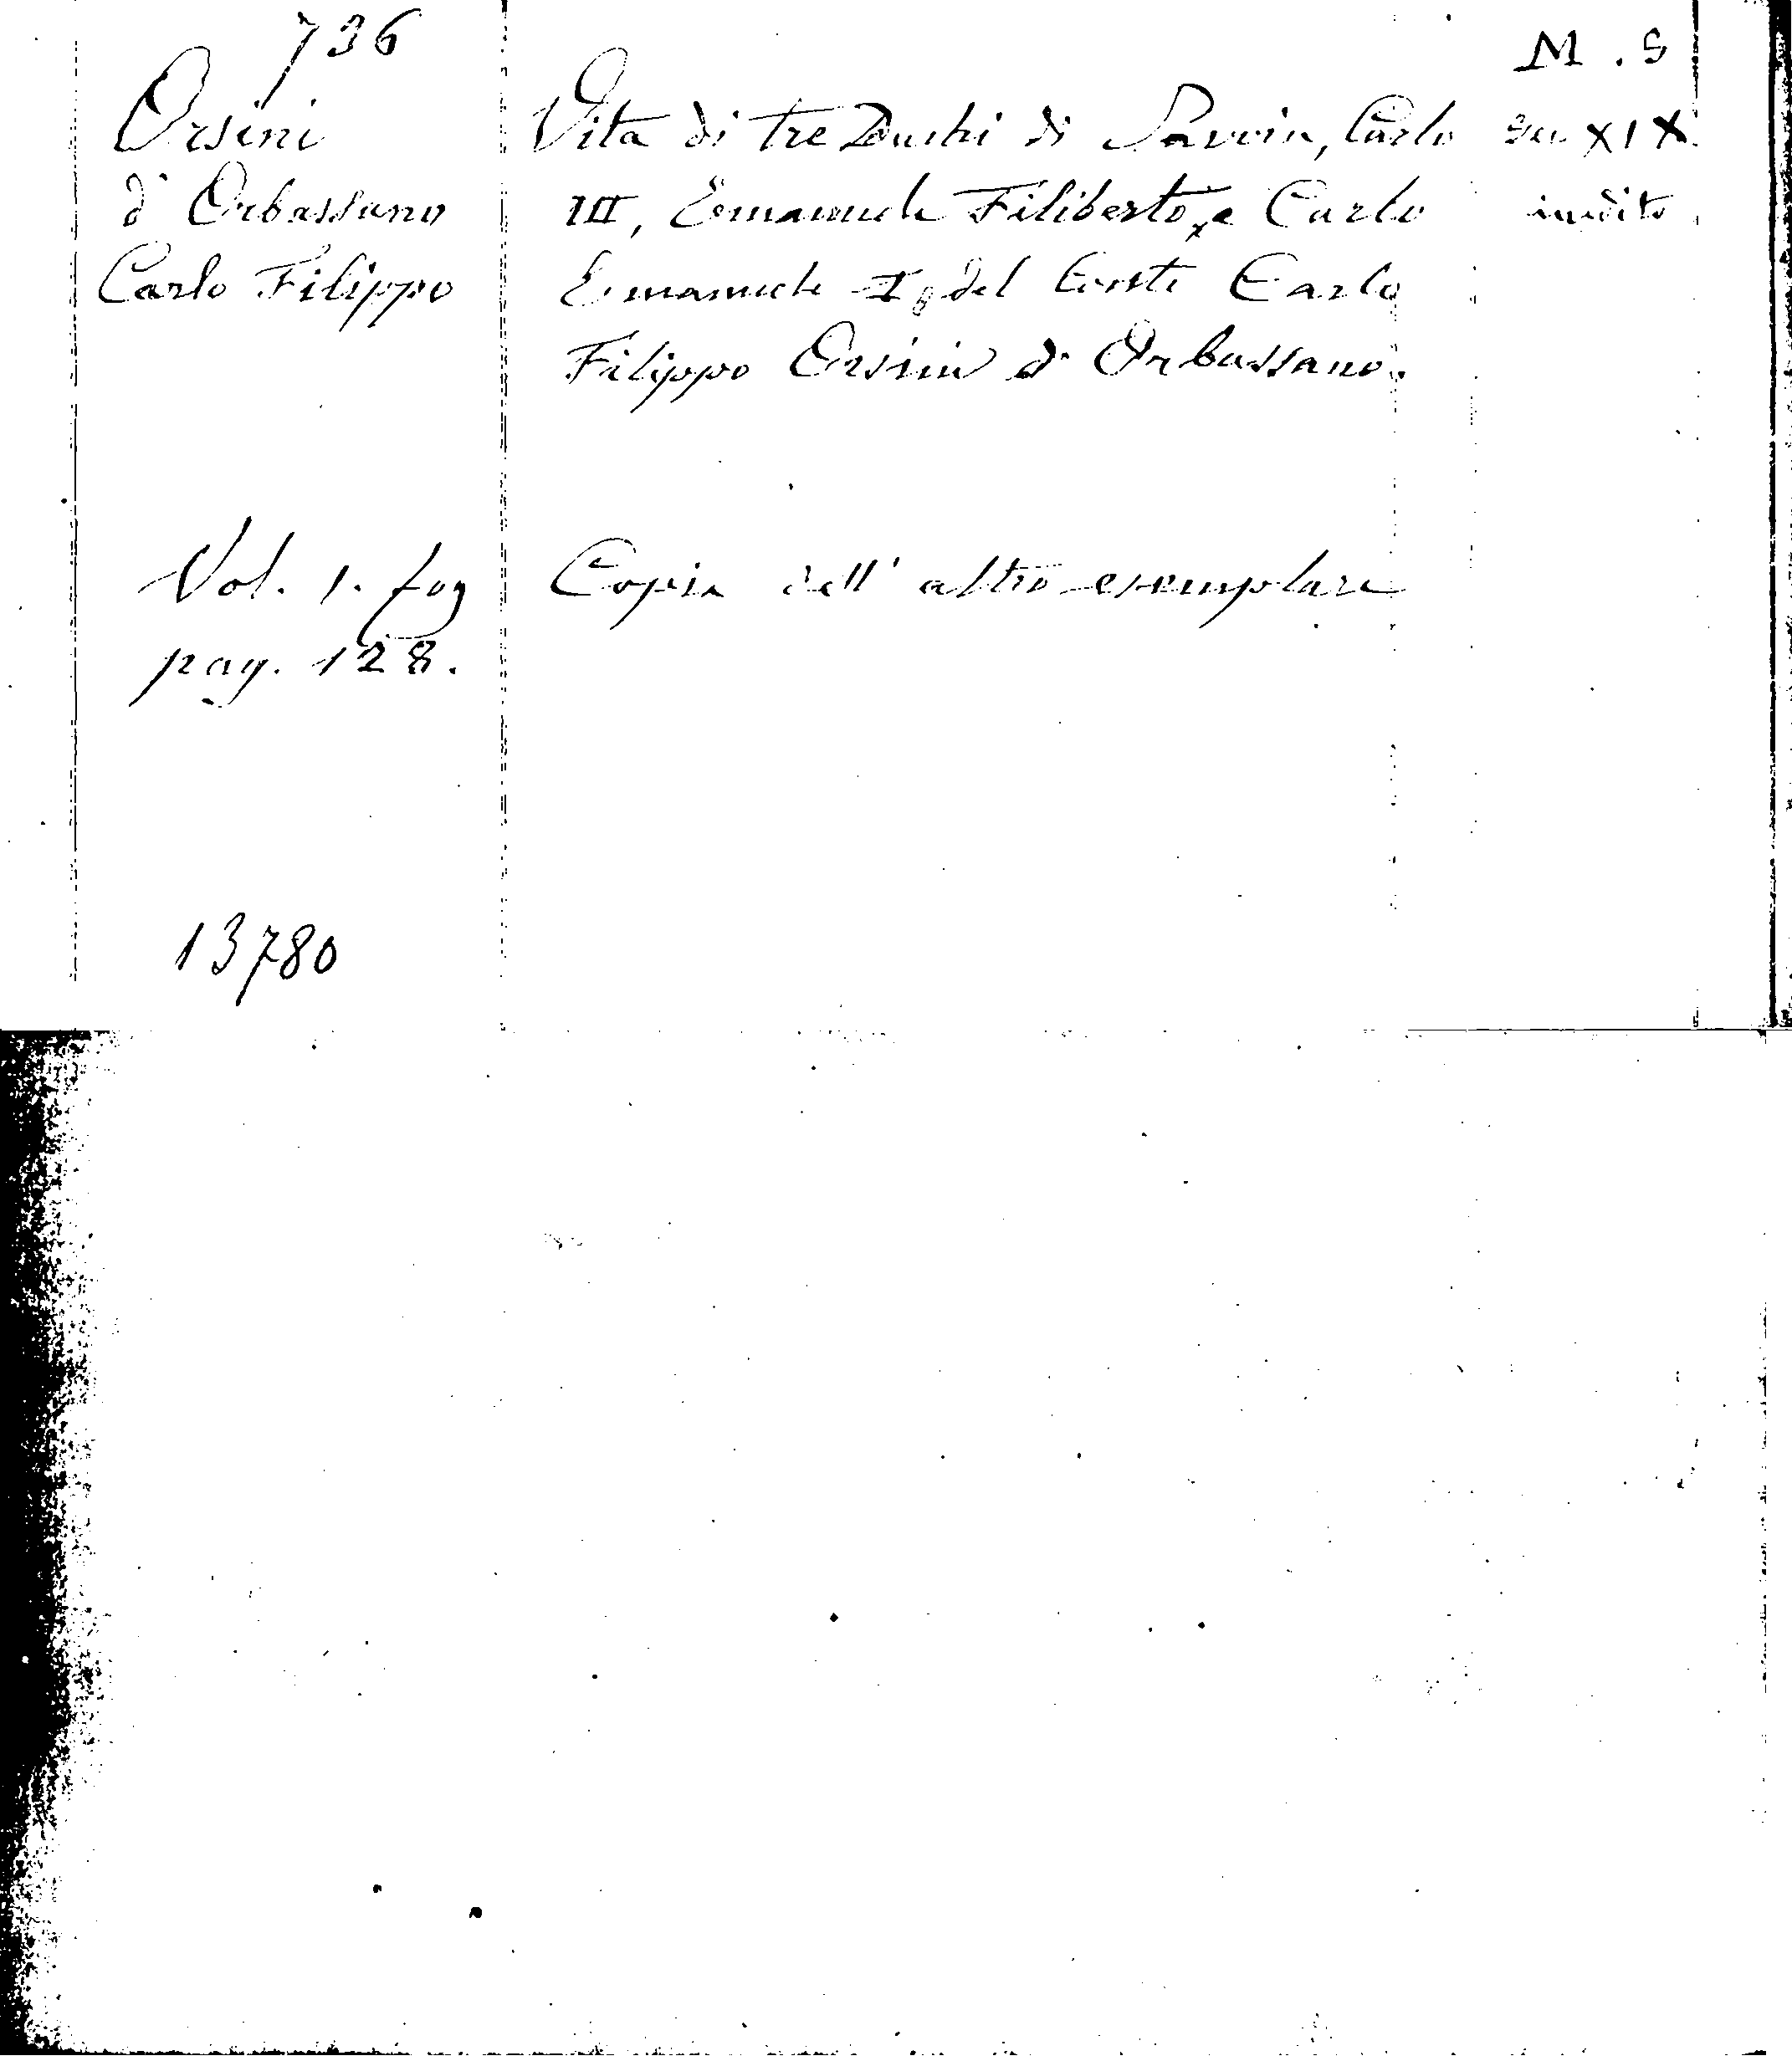 736
Orsini
d'Orbassano
Carlo Filippo
Vol. 1. fog
pag. 128.
13780
Vita di tre Duchi di Savoia, Carlo
III, Emanuele Filiberto, e Carlo
Emanuele I, del Conte Carlo
Filippo Orsini d'Orbassano.
Copia dell'altro esemplare
M.S
sec XIX
inedito